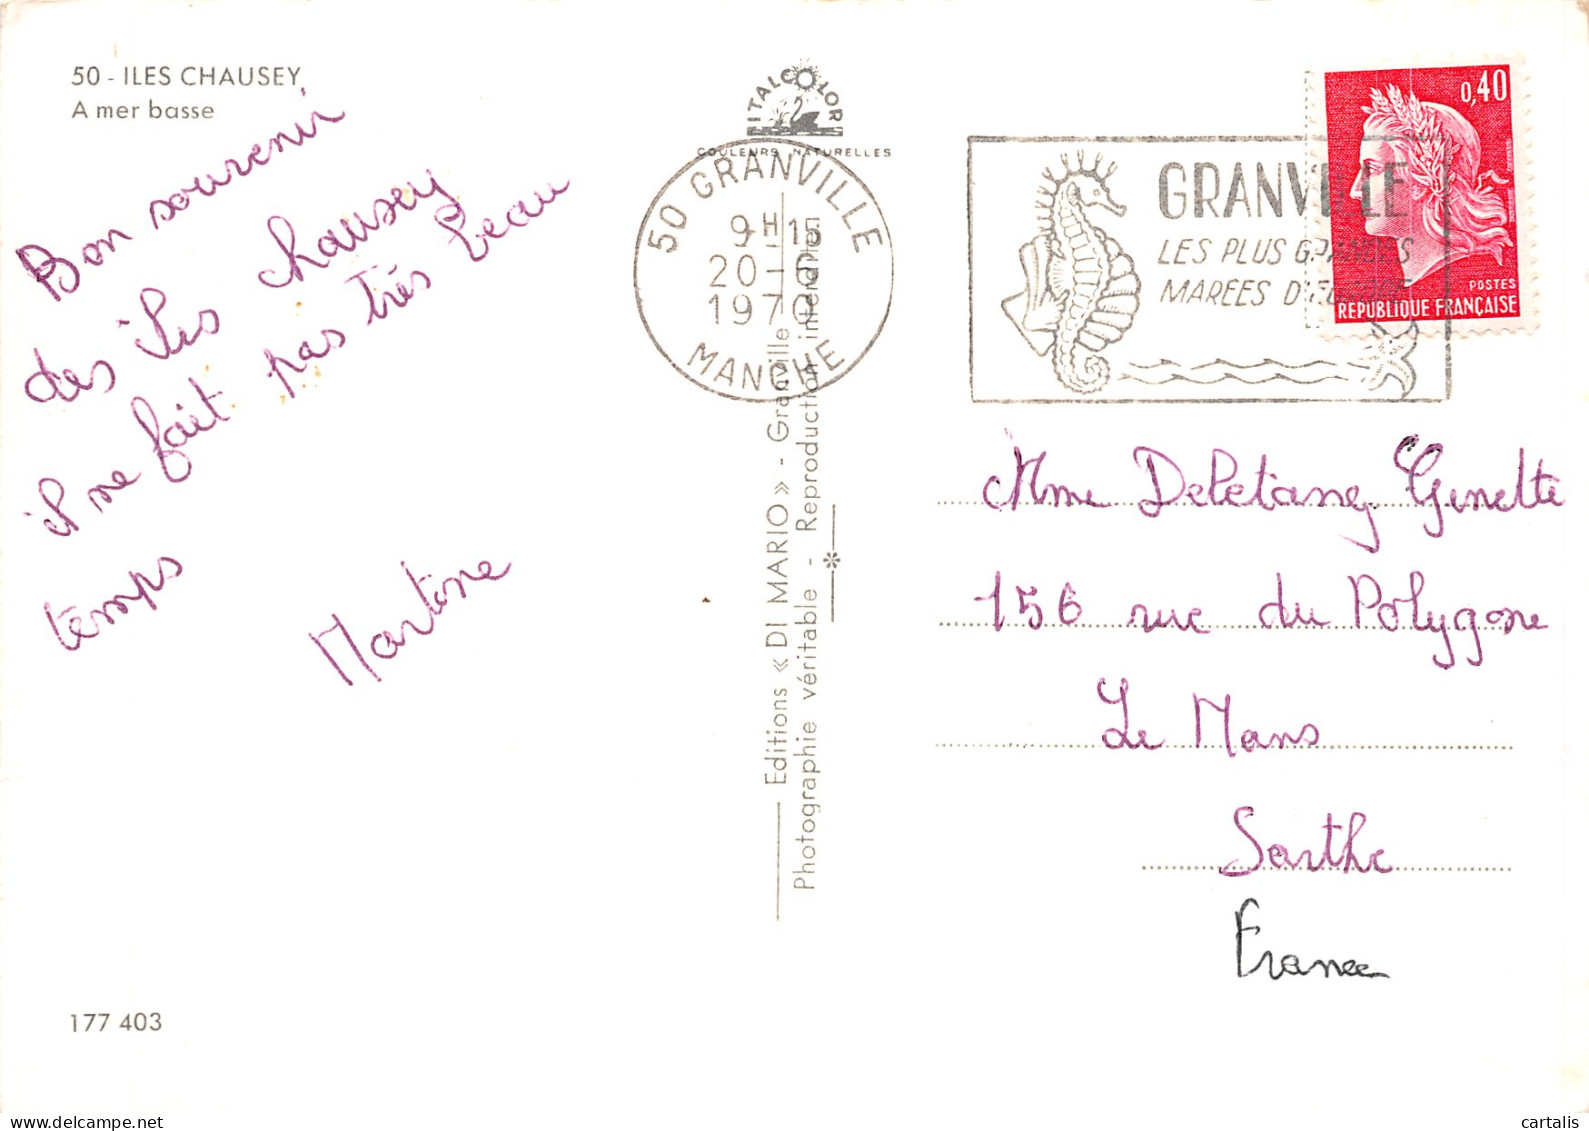 50 - ILES CHAUSEY
A mer basse
Bon souvenir
des îles chausey
il ne fait pas très beau
temps
Martine
177 403
ITALCOLOR
COULEURS NATURELLES
50 GRANVILLE
9H15
20-
1970
MANCHE
Editions « DI MARIO » - Granville
Photographie véritable - Reproduction interdite
GRANVILLE
LES PLUS GRANDES
MAREES D'EUROPE
0,40
POSTES
REPUBLIQUE FRANÇAISE
Mme Deletang Ginette
156 rue du Polygone
Le Mans
Sarthe
France
cartalis